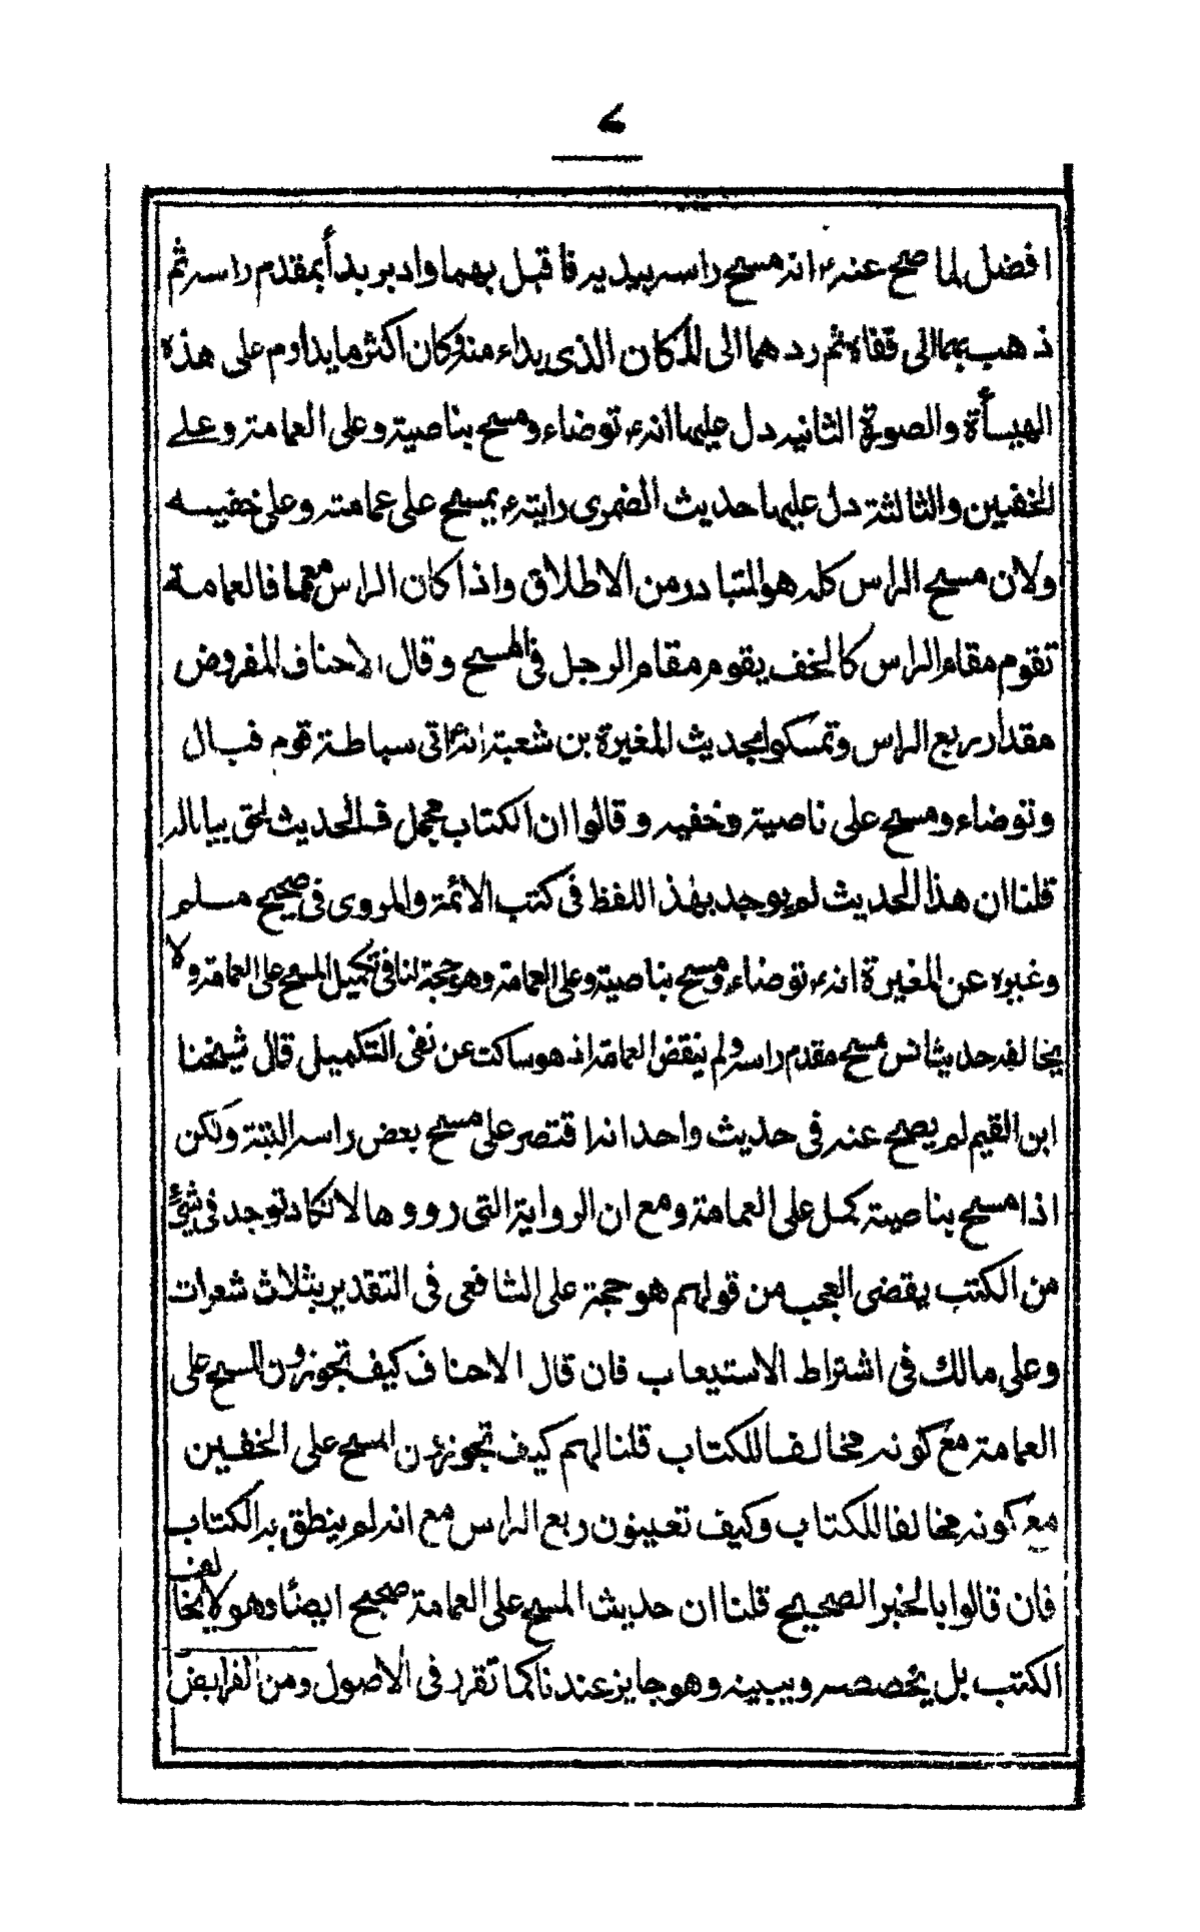 ۷
افضل لما صح عنه ۴ انه مسح راسه بيديه فاقبل بهما وادبر بدأ بمقدم راسه ثم
ذهب بهما الى قفاه ثم ردهما الى المكان الذى بداء منه وكان اكثر ما يداوم على هذه
الهيأة والصورة الثانيه دل عليها انه ۴ توضاء ومسح بناصيته وعلى العمامة وعلى
الخفين والثالثة دل عليها حديث الضمرى رايته ۴ يمسح على عمامته وعلى خفيه
ولان مسح الراس كله هو المتبادر من الاطلاق واذا كان الراس معمما فالعمامة
تقوم مقام الراس كالخف يقوم مقام الرجل فى المسح وقال الاحناف المفروض
مقدار ربع الراس وتمسكوا بحديث المغيرة بن شعبة انه ۴ اتى سباطة قوم فبال
وتوضاء ومسح على ناصيته وخفيه وقالوا ان الكتاب مجمل فالحديث لحق بيانا له
قلنا ان هذا الحديث لم يوجد بهذا اللفظ فى كتب الائمة والمروى فى صحيح مسلم
وغيره عن المغيرة انه ۴ توضاء ومسح بناصيته وعلى العمامة وهو حجة لنا فى تكميل المسح على العمامة ولا
يخالفه حديث انس مسح مقدم راسه ولم ينقض العمامة اذ هو ساكت عن نفى التكميل قال شيخنا
ابن القيم لم يصح عنه فى حديث واحد انه اقتصر على مسح بعض راسه البتة ولكن
اذا مسح بناصيته كمل على العمامة ومع ان الرواية التى رووها لا تكاد توجد فى شئ
من الكتب يقضى العجب من قولهم هو حجة على الشافعى فى التقدير بثلاث شعرات
وعلى مالك فى اشتراط الاستيعاب فان قال الاحناف كيف تجوزون المسح على
العمامة مع كونه مخالفا للكتاب قلنا لهم كيف تجوزون المسح على الخفين
مع كونه مخالفا للكتاب وكيف تعينون ربع الراس مع انه لم ينطق به الكتاب
فان قالوا بالخبر الصحيح قلنا ان حديث المسح على العمامة صحيح ايضا وهو لا يخالف
الكتب بل يخصصه ويبينه وهو جايز عندنا كما تقرر فى الاصول ومن الفرايض